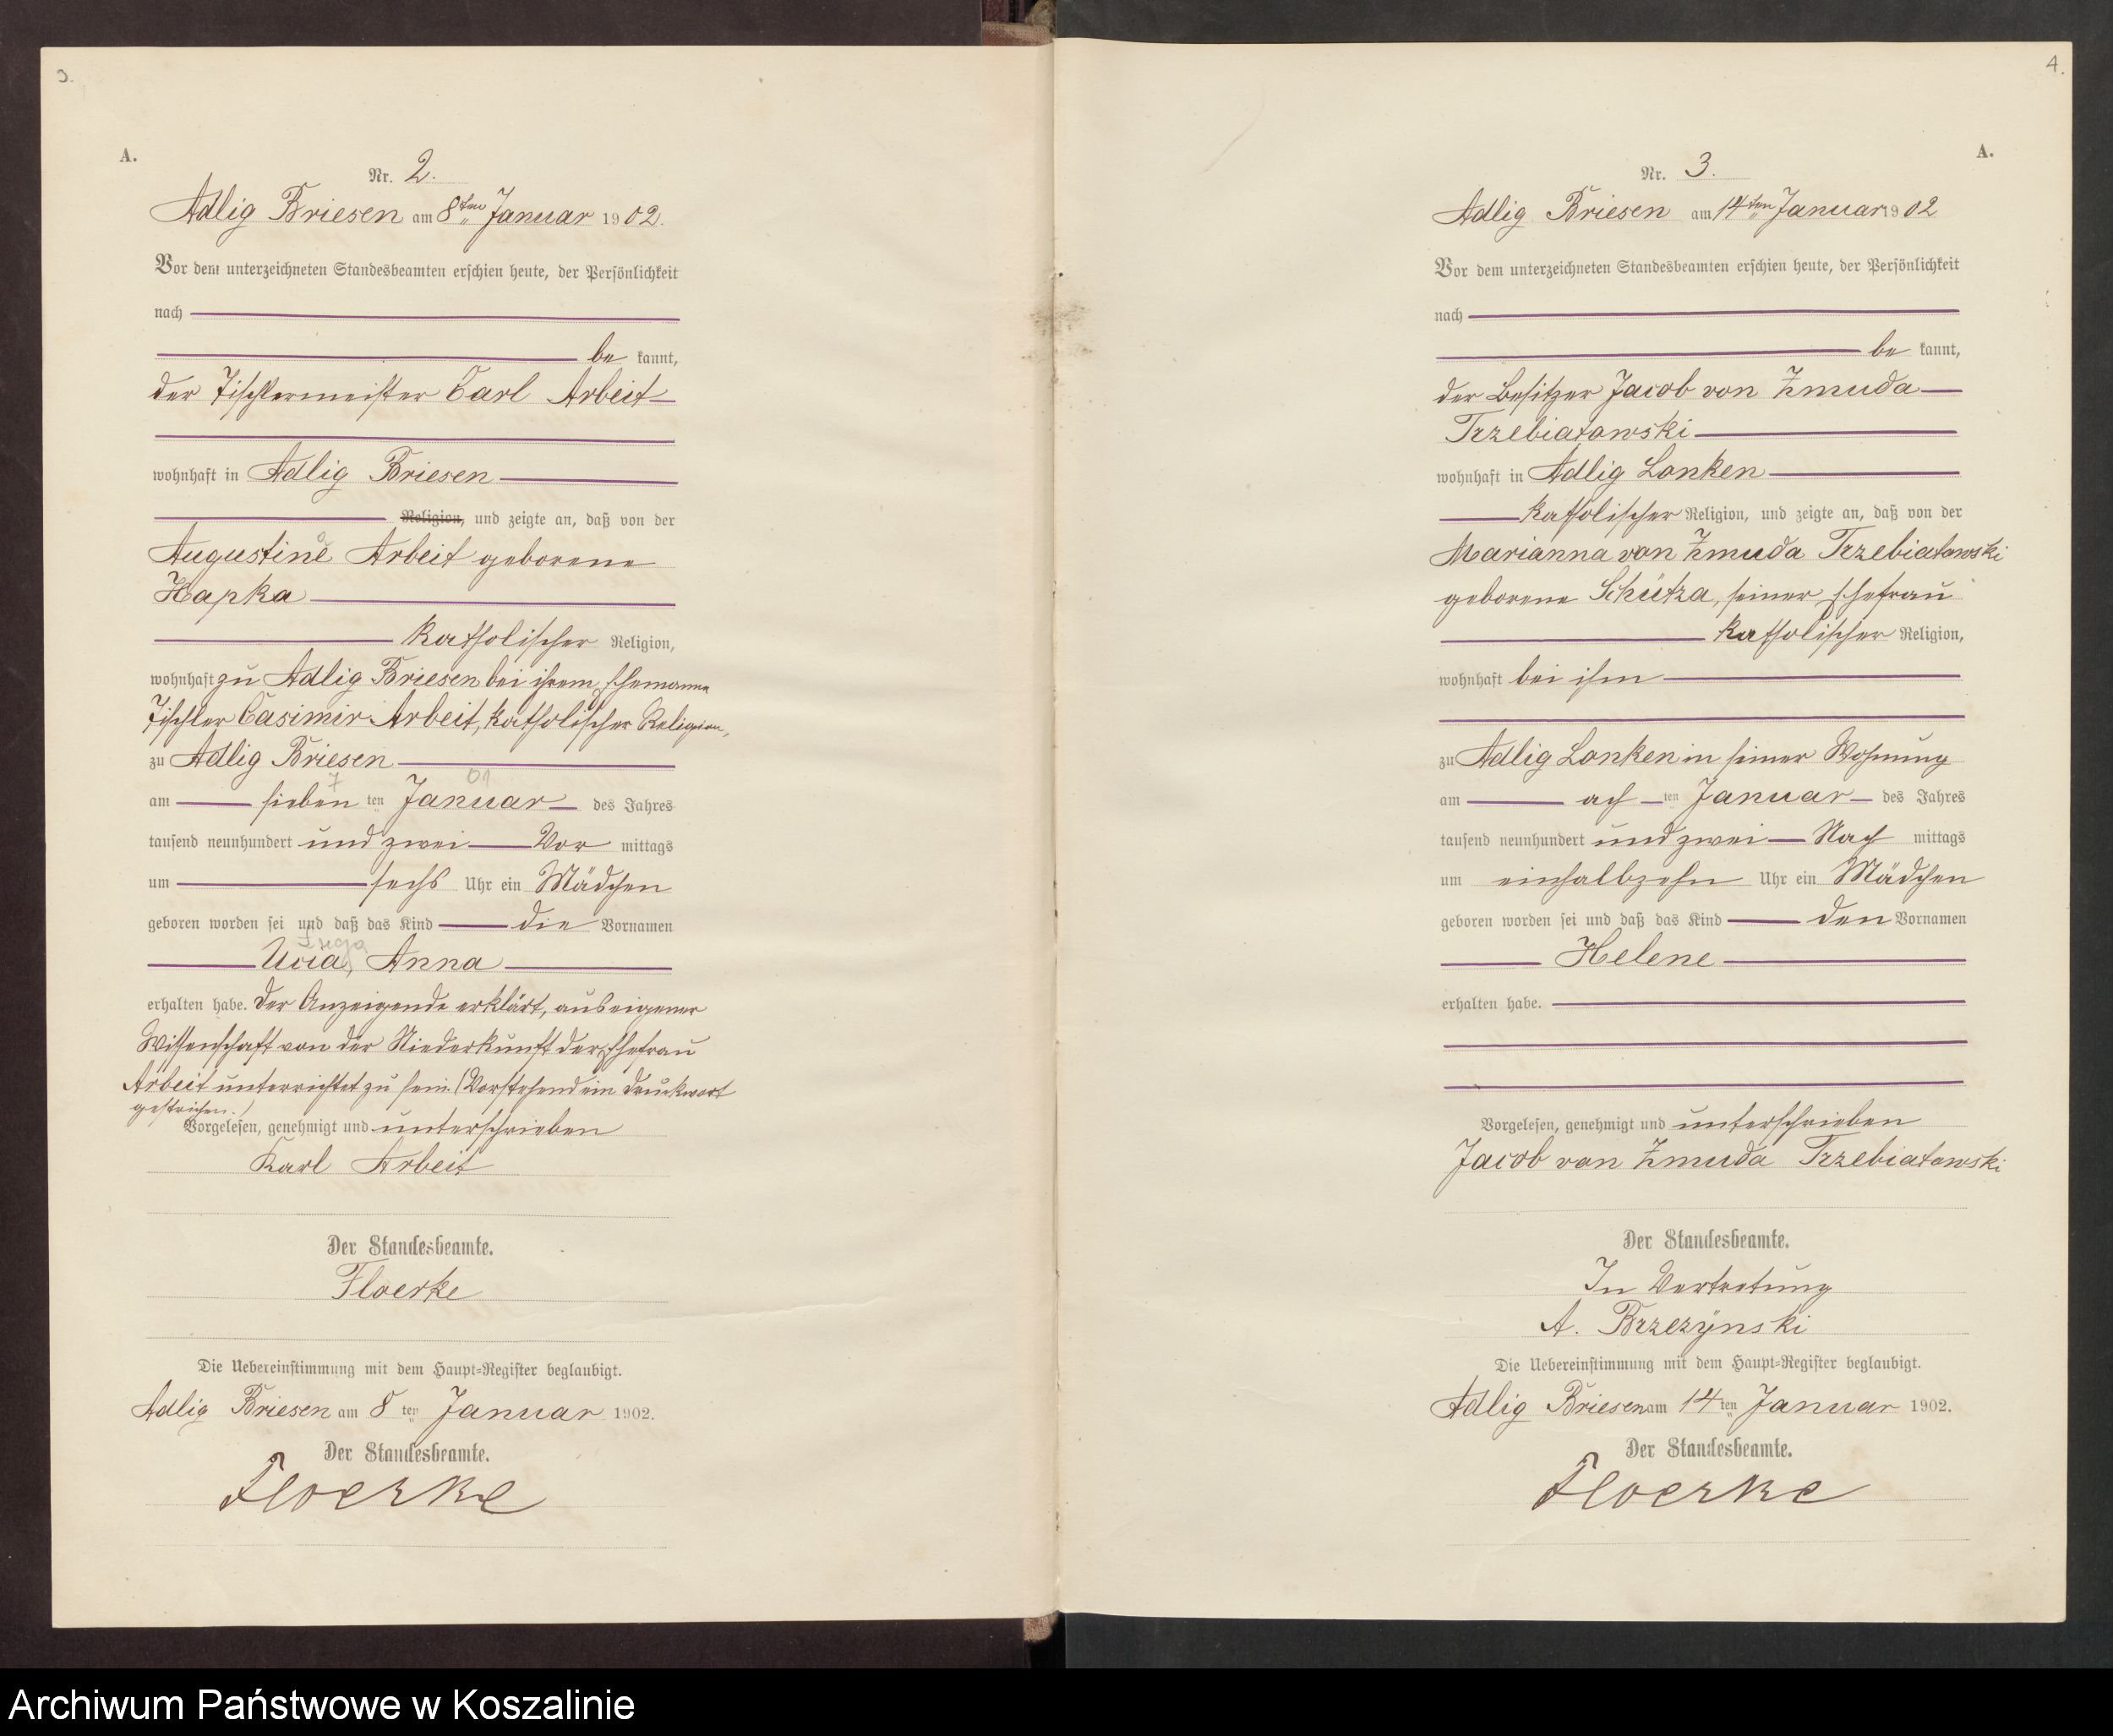 3.
A.
Nr. 2.
Adlig Briesen am 8ten Januar 1902.
Vor dem unterzeichneten Standesbeamten erschien heute, der Persönlichkeit
nach
be kannt,
der Tischlermeister Carl Arbeit
wohnhaft in Adlig Briesen
Religion, und zeigte an, daß von der
Augustine Arbeit geborene
Hapka
katholischer Religion,
wohnhaft zu Adlig Briesen bei ihrem Ehemanne
Tischler Casimir Arbeit, katholischer Religion,
zu Adlig Briesen
7 01
am sieben ten Januar des Jahres
tausend neunhundert und zwei Vor mittags
um sechs Uhr ein Mädchen
geboren worden sei und daß das Kind die Vornamen
Anna
erhalten habe. Der Anzeigende erklärt, aus eigener
Wissenschaft von der Niederkunft der Ehefrau
Arbeit unterrichtet zu sein. (Vorstehend ein Druckwort
gestrichen.)
Vorgelesen, genehmigt und unterschrieben
Karl Arbeit
Der Standesbeamte.
Floerke
Die Uebereinstimmung mit dem Haupt-Register beglaubigt.
Adlig Briesen am 8 ten Januar 1902.
Der Standesbeamte.
Floerke
4.
A.
Nr. 3.
Adlig Briesen am 14ten Januar 1902
Vor dem unterzeichneten Standesbeamten erschien heute, der Persönlichkeit
nach
be kannt,
der Besitzer Jacob von Zmuda
Trzebiatowski
wohnhaft in Adlig Lonken
katholischer Religion, und zeigte an, daß von der
Marianna von Zmuda Trzebiatowski
geborene Schütza, seiner Ehefrau
katholischer Religion,
wohnhaft bei ihm
zu Adlig Lonken in seiner Wohnung
am ach ten Januar des Jahres
tausend neunhundert und zwei Nach mittags
um einhalbzehn Uhr ein Mädchen
geboren worden sei und daß das Kind den Vornamen
Helene
erhalten habe.
Vorgelesen, genehmigt und unterschrieben
Jacob von Zmuda Trzebiatowski
Der Standesbeamte.
In Vertretung
A. Brzezynski
Die Uebereinstimmung mit dem Haupt-Register beglaubigt.
Adlig Briesen am 14 ten Januar 1902.
Der Standesbeamte.
Floerke
Archiwum Państwowe w Koszalinie